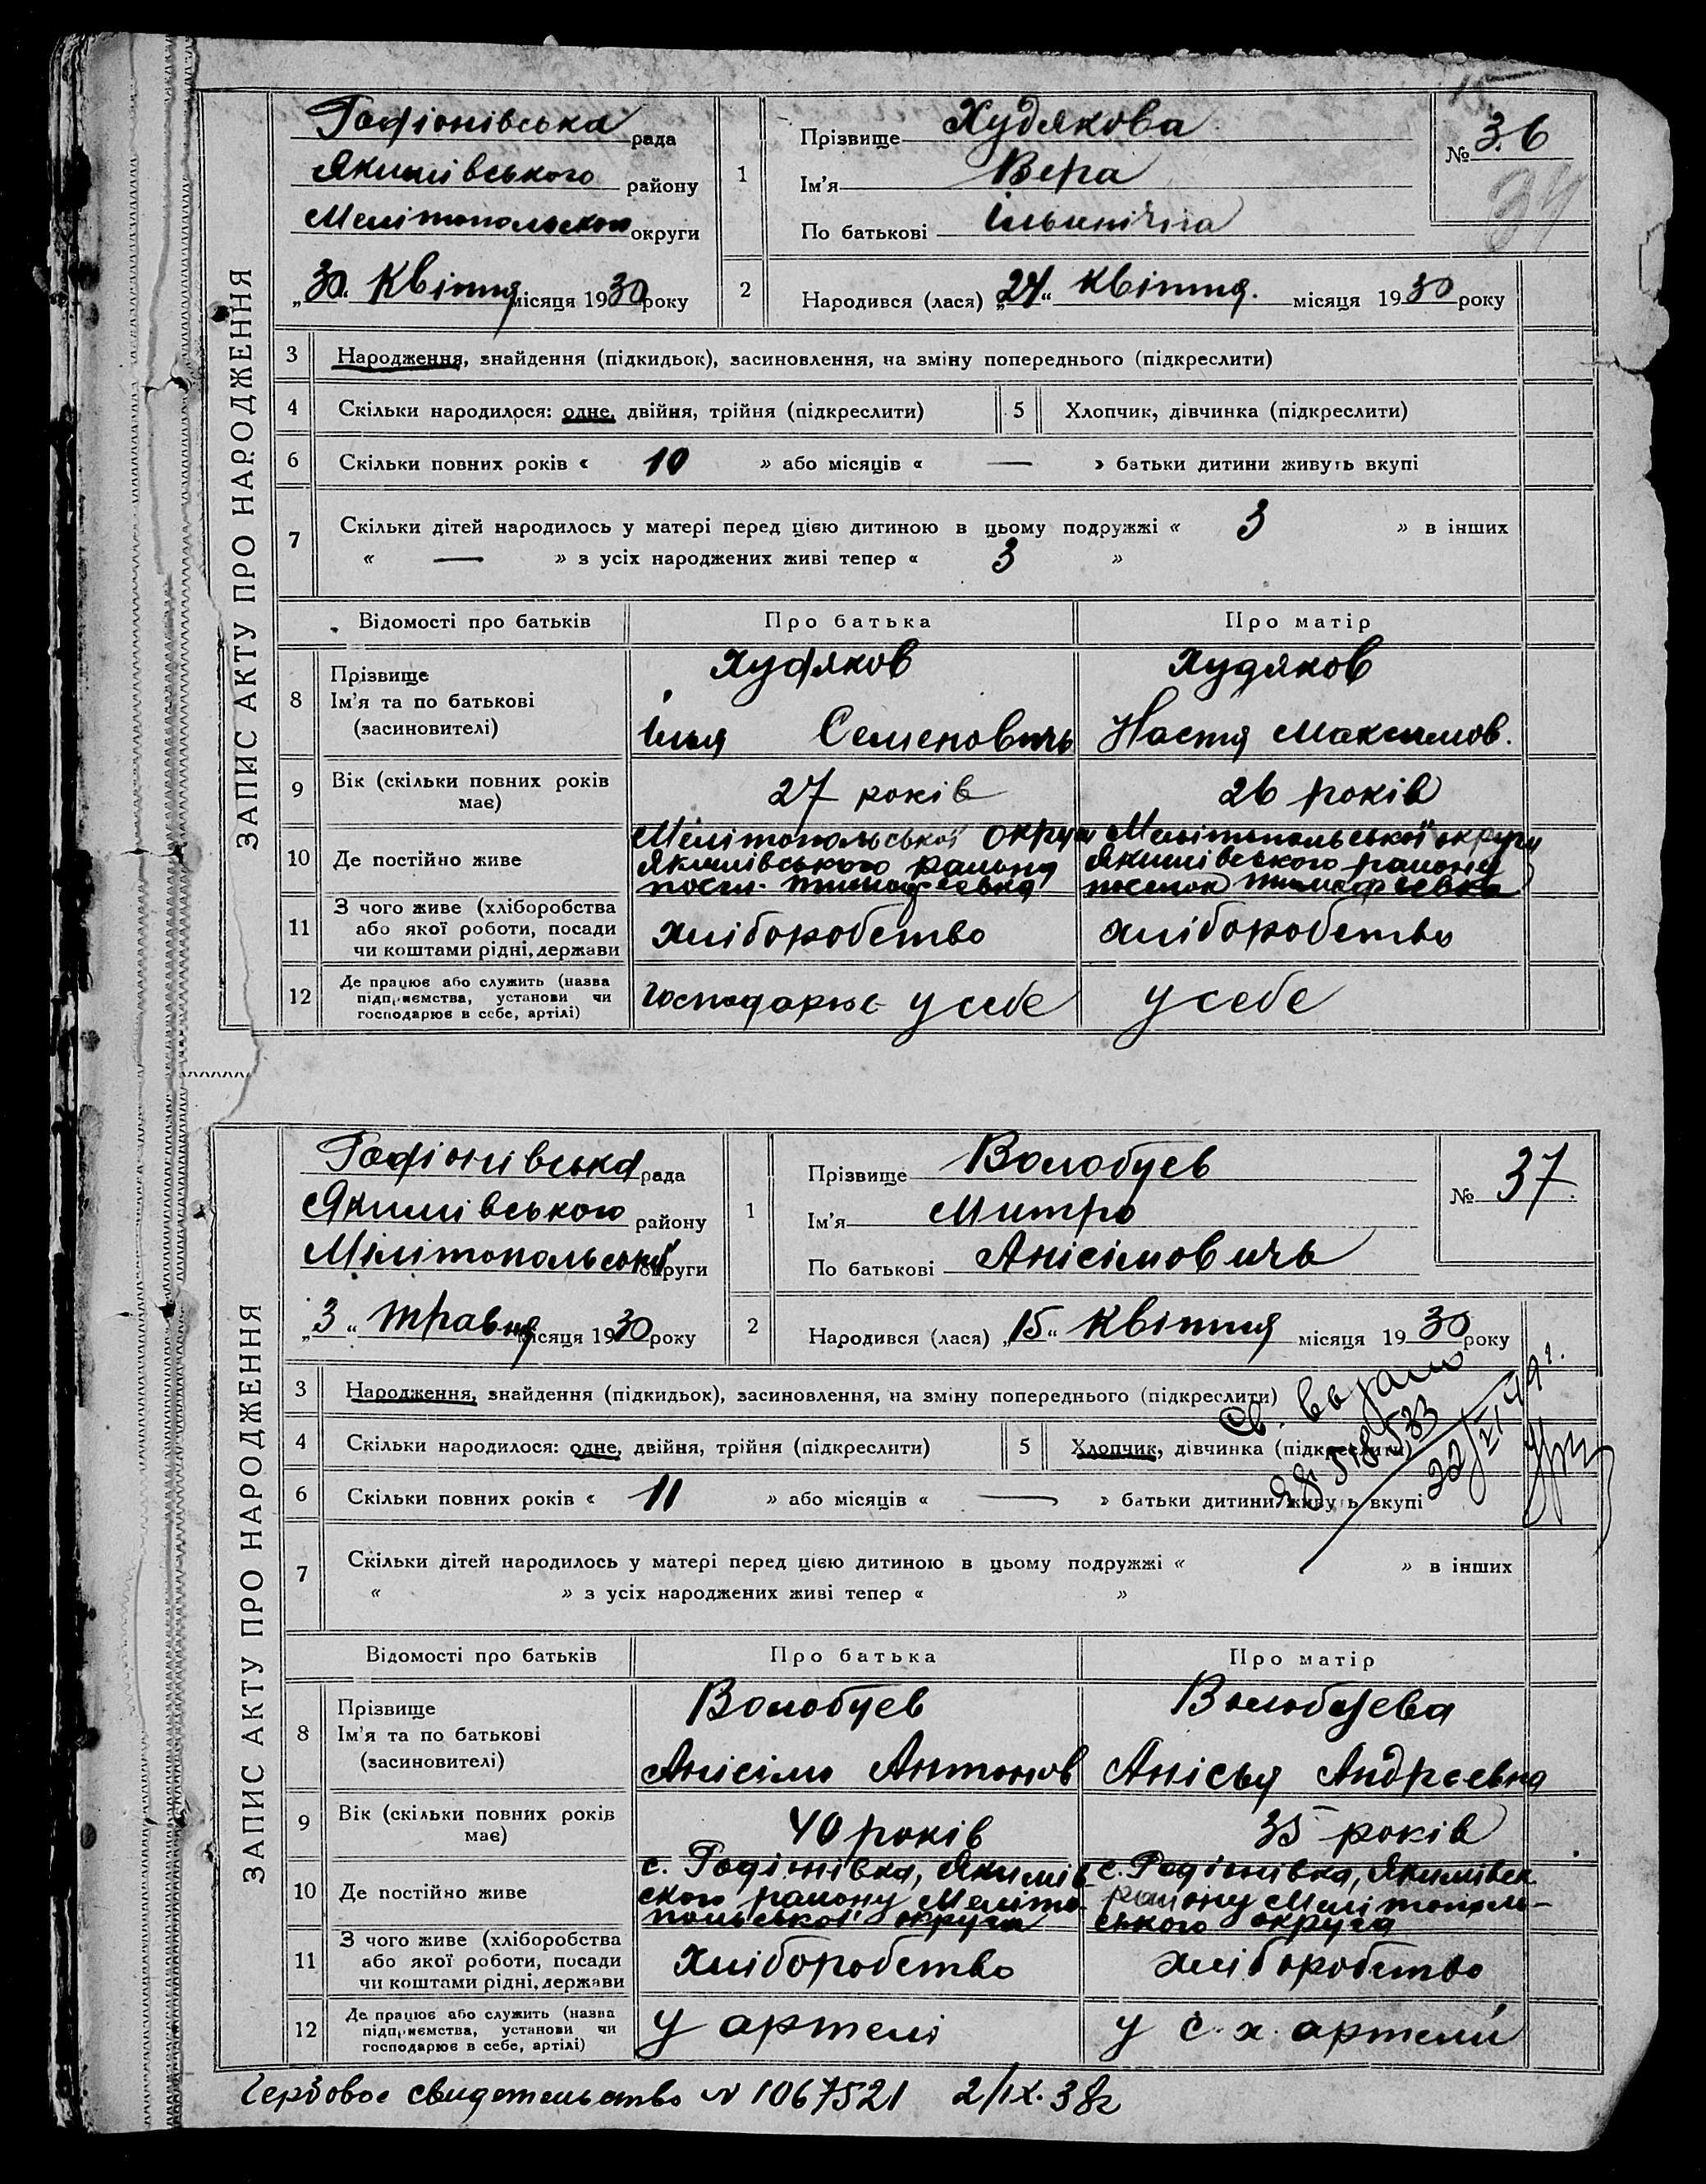 ЗАПИС АКТУ ПРО НАРОДЖЕННЯ
Радіонівська рада
Якимівського району
Мелітопольської округи
„30“ Квітня місяця 1930 року
1
Прізвище Худякова
Ім'я Вера
По батькові Ільинічна
№ 36
34
2
Народився (лася) „24“ Квітня. місяця 1930 року
3 Народження, знайдення (підкидьок), засиновлення, на зміну попереднього (підкреслити)
4 Скільки народилося: одне, двійня, трійня (підкреслити) 5 Хлопчик, дівчинка (підкреслити)
6 Скільки повних років « 10 » або місяців « — » батьки дитини живуть вкупі
7 Скільки дітей народилось у матері перед цією дитиною в цьому подружжі « 3 » в інших
« — » з усіх народжених живі тепер « 3 »
Відомості про батьків Про батька Про матір
8 Прізвище
Ім'я та по батькові
(засиновителі)
Худяков
Ілья Семеновичь
Худяков
Настя Максимов.
9 Вік (скільки повних років
має)
27 років
26 років
10 Де постійно живе
Мелітопольської округи
Якимівського району
посел. Тимофеевка
Мелітопольської округи
Якимівського району
поселок Тимофеевка
11 З чого живе (хліборобства
або якої роботи, посади
чи коштами рідні, держави
хліборобство
хліборобство
12 Де працює або служить (назва
підприємства, установи чи
господарює в себе, артілі)
Господарює у себе
у себе
ЗАПИС АКТУ ПРО НАРОДЖЕННЯ
Радіонівська рада
Якимівського району
Мілітопольської округи
„3“ травня місяця 1930 року
1
Прізвище Волобуев
Ім'я Митро
По батькові Анісімовичь
№ 37.
2
Народився (лася) „15“ Квітня місяця 1930 року
3 Народження, знайдення (підкидьок), засиновлення, на зміну попереднього (підкреслити)
4 Скільки народилося: одне, двійня, трійня (підкреслити) 5 Хлопчик, дівчинка (підкреслити)
6 Скільки повних років « 11 » або місяців « — » батьки дитини живуть вкупі
7 Скільки дітей народилось у матері перед цією дитиною в цьому подружжі « » в інших
« » з усіх народжених живі тепер « »
Св. выдано
Відомості про батьків Про батька Про матір
8 Прізвище
Ім'я та по батькові
(засиновителі)
Волобуев
Анісімо Антонов
Волобуева
Анісья Андреевна
9 Вік (скільки повних років
має)
40 років
35 років
10 Де постійно живе
с. Радіонівка, Якимів
ского району Меліто-
польської округи
с. Радіонівка, Якимівск.
району Мелітополь-
ського округа
11 З чого живе (хліборобства
або якої роботи, посади
чи коштами рідні, держави
хліборобство
хліборобство
12 Де працює або служить (назва
підприємства, установи чи
господарює в себе, артілі)
у артелі
у с. х. артели
Гербовое свидетельство № 1067521 2/IX. 38г